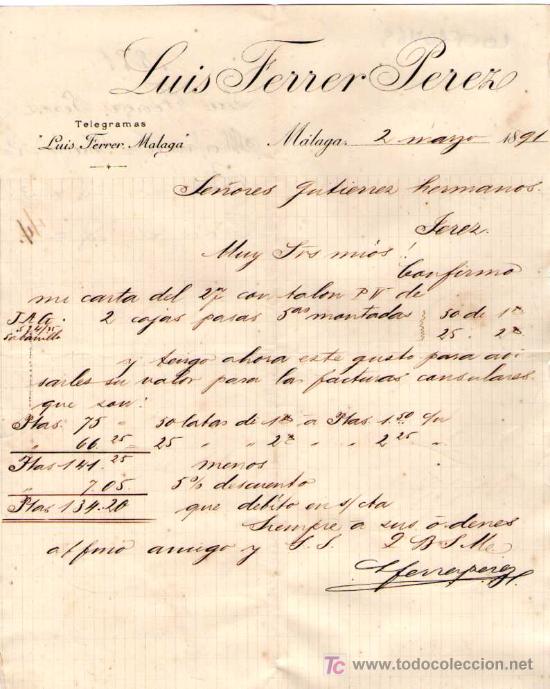 Luis Ferrer Perez
Telegramas
"Luis Ferrer. Malaga"
Málaga, 2 marzo 1891
Señores Gutierrez hermanos.
Jerez.
Muy Srs mios!
Confirmo
mi carta del 27 con talon P V de
2 cajas pasas 5as montadas 50 de 1a
25. 2a
y tengo ahora este gusto para avi
sarles su valor para las facturas consulares
que son:
Ptas 75 - 50 latas de 1a a Ptas 1.50 c/u
" 66.25 - 25 " " 2a " " 2.25 "
Ptas 141.25 menos
" 7.05 5% descuento
Ptas 134.20 que debito en s/cta
Siempre a sus ordenes
afmo amigo y S. S. Q B S M
LFerrerperez
TC www.todocoleccion.net